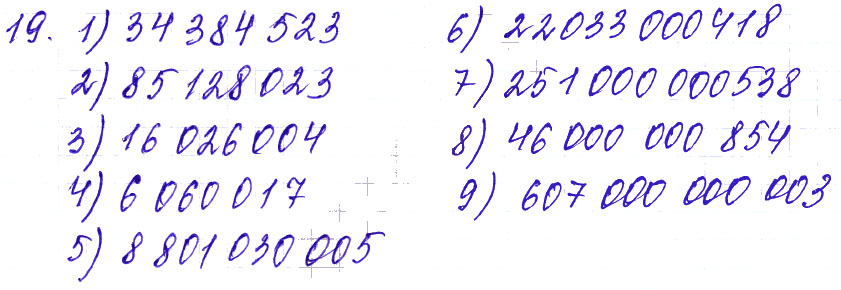 19. 1) 34 384 523
2) 85 128 023
3) 16 026 004
4) 6 060 017
5) 8 801 030 005
6) 22033 000 418
7) 251 000 000538
8) 46 000 000 854
9) 607 000 000 003